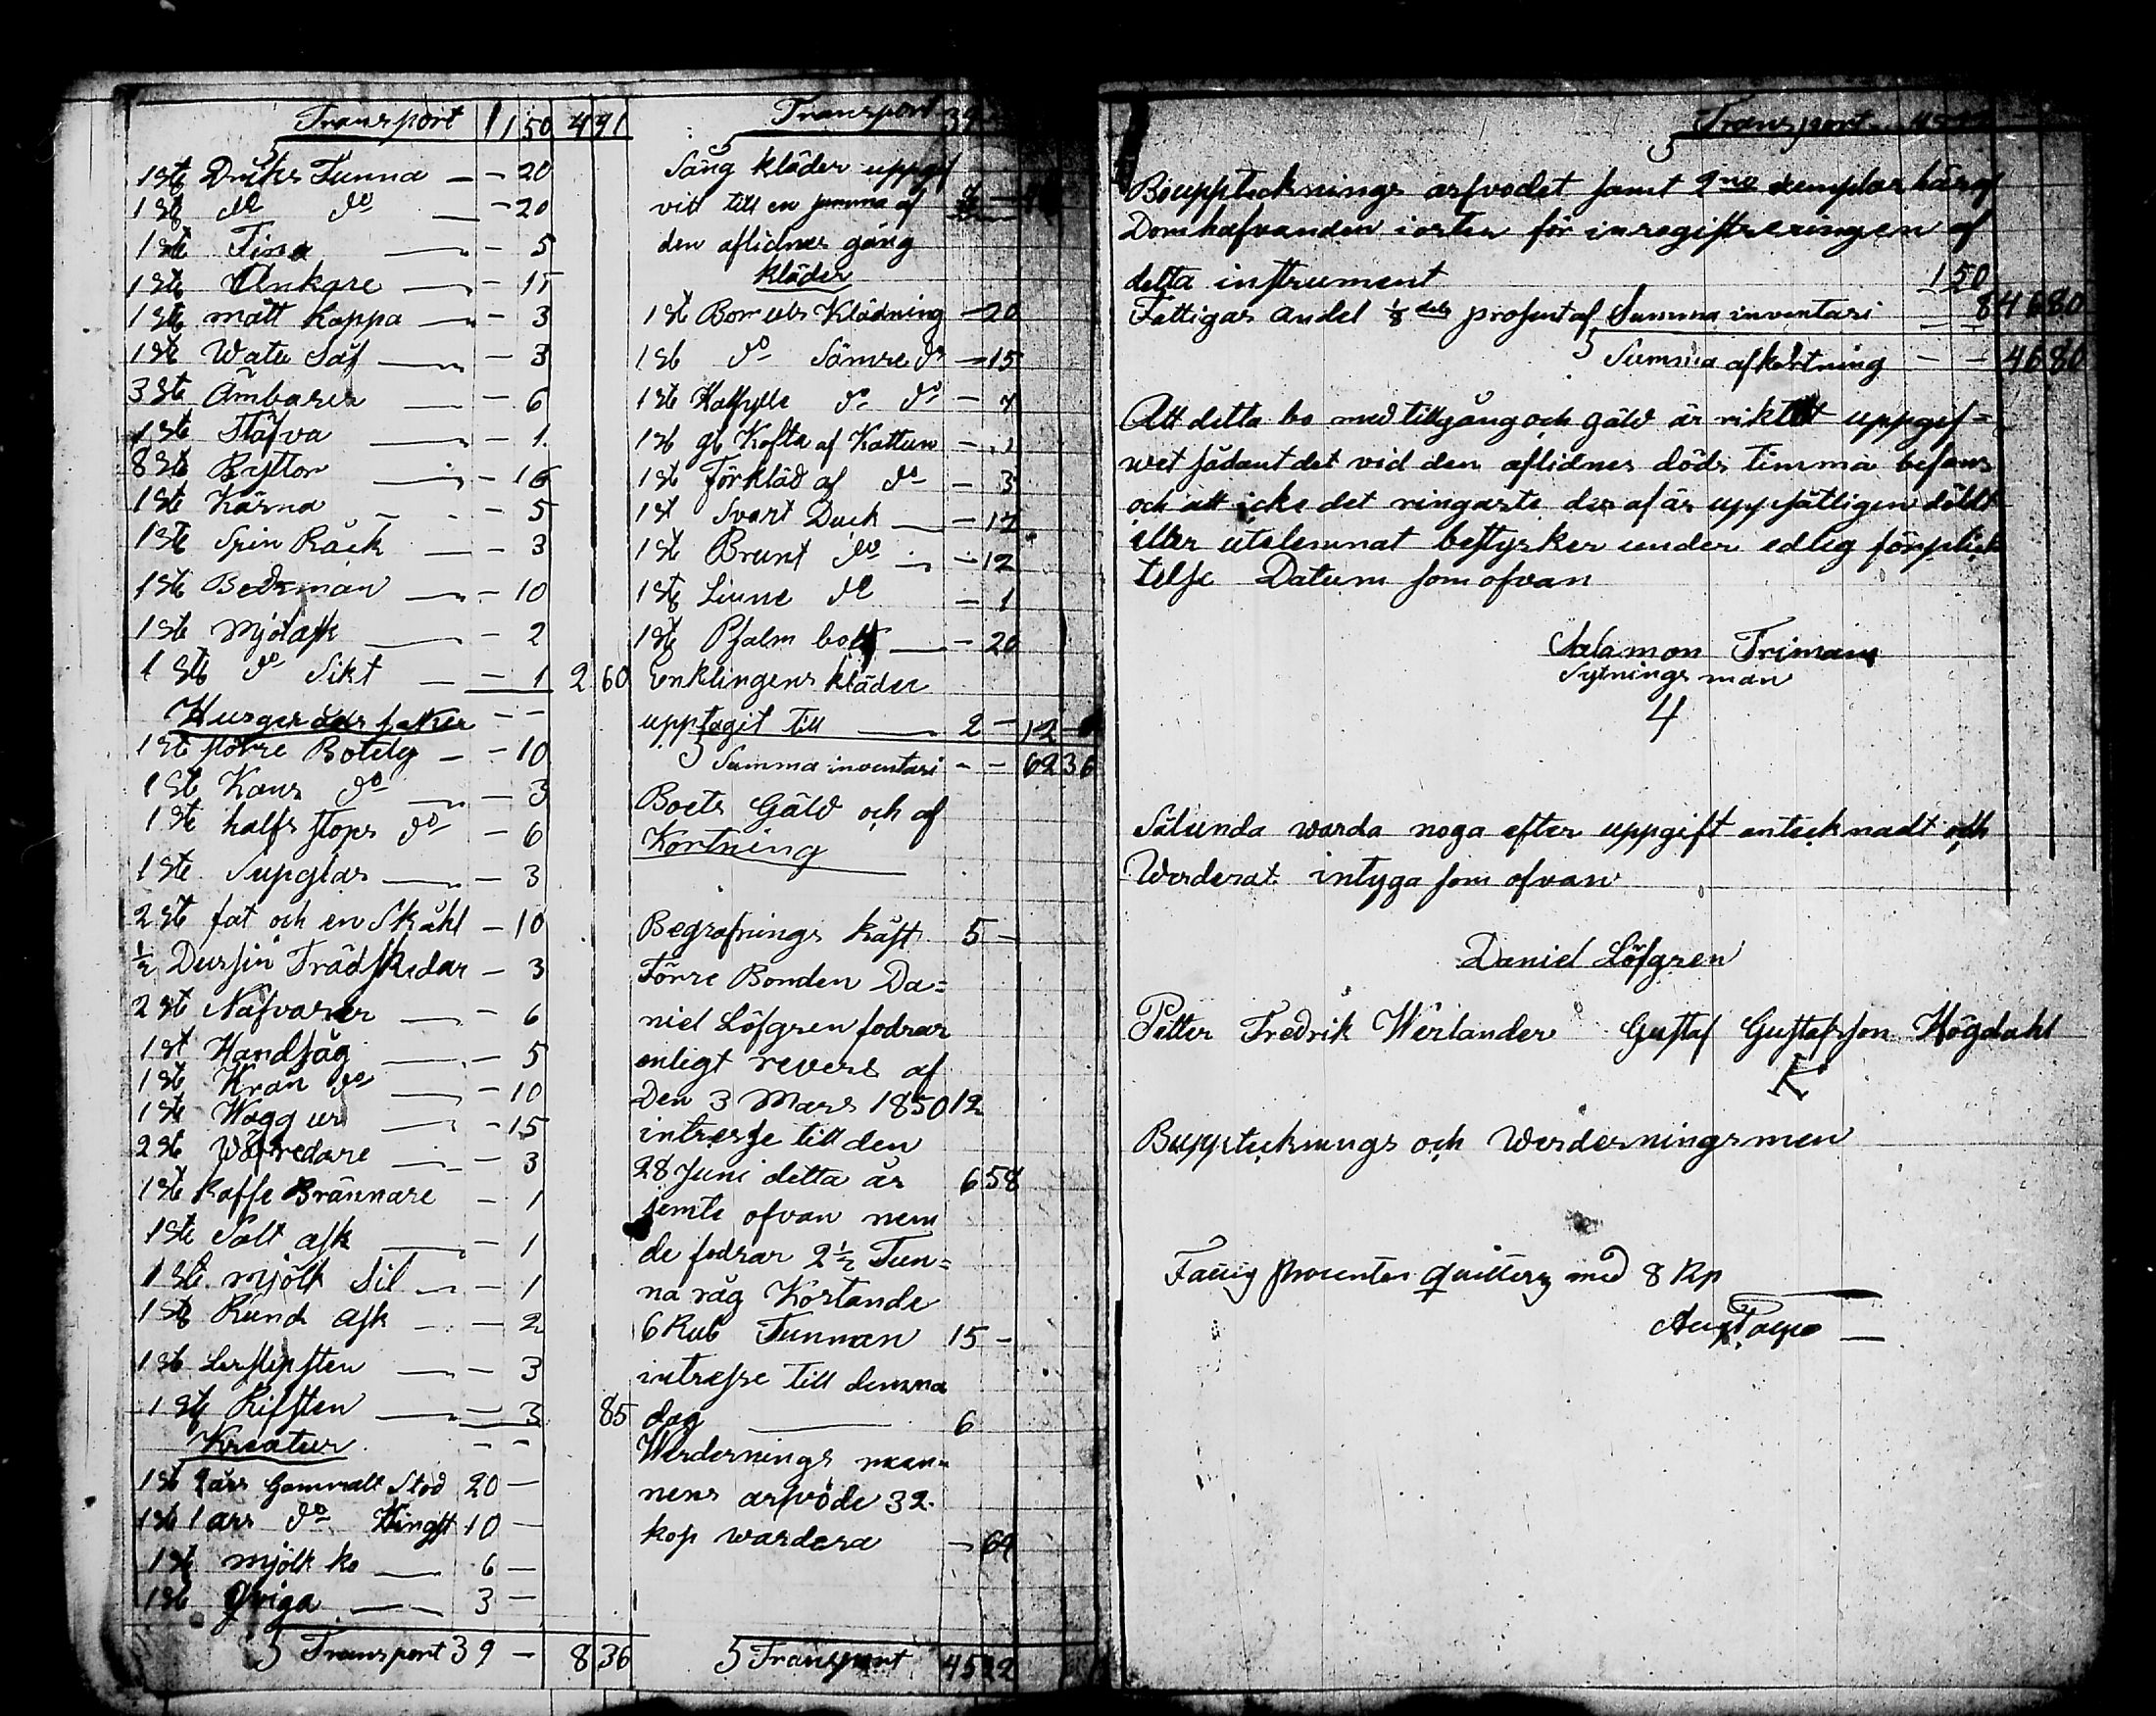 Transport 1 1 50 4 91
1 St Dricks Tunna — - 20
1 St do do — - 20
1 St Tina — - 5
1 St Ankare — - 15
1 St mått kappa — - 3
1 St Watu Såf — - 3
3 St Ämbaren — - 6
1 St Stäfva — - 1
8 St Byttor — - 16
1 St Kärna - - 5
1 St Spin Råck — - 3
1 St Beckman — - 10
1 St Mjölask — - 2
1 St do Sikt — - 1 2 60
Husgeråds saker - -
1 St större Botelg — - 10
1 St Kans do — - 3
1 St halfs stops do - 6
1 St Supglas — - 3
2 St fat och en Skåhl - 10
½ Dussin Trädskedar - 3
2 St Näfvarer — - 6
1 St Handsåg — - 5
1 St Kran do — - 10
1 St Wägg ur — - 15
2 St Wäfredare — - 3
1 St Kaffe Brännare - 1
1 St Salt ask — - 1
1 St mjölk Sil — - 1
1 St Rund Ask — - 2
1 St Lerslipsten — - 3
1 St Rifsten — - 3 85
Kreatur - -
1 St års Gammalt Stod 20 —
1 St 1 års do Hingst 10 —
1 St mjölk ko — 6 —
1 St Qviga — 3 —
Transport 39 — 8 36
Transport 39
Säng kläder uppgif
vit till en summa af
den aflidnes gång
kläder
1 St Klädning - 20
1 St do Sämre do - 15
1 St Halfylle do do - 7
1 St gl Kofta af Kattun -
1 St Förkläd af do - 3
1 St Svart Duck — - 17
1 St Brunt do - 12
1 St Linne do - 1
1 St Psalm bok — - 20
Enklingens kläder
upptagit till — 2 - 12 -
Summa inventari - - 62 36
Boets Gäld och af
Kortning
Begrafnings kåst 5 —
Förre Bonden Da=
niel Löfgren fodrar
enligt revers af
Den 3 Mars 1850 12
intresse till den
28 Juni detta år 6 58
jemte ofvan nem
de fodrar 2½ Tun=
na råg Kostande
6 Rub Tunnan 15 -
intresse till denna
dag — 6
Werdernings man=
nens arfvöde 32
kop wardera - 64
Transport 45 22
Transport
Bouppteknings arfvodet samt 2no exemplar häraf
Domhafvanden iarten för inregistreringen af
detta instrument 1 50
Fattigas andel ⅛ dels prosent af Summa inventari 8 46 80
Summa afkortning - - 46 80
Att detta bo med tillgång och gäld är riktit uppgif=
wet sådant det vid den aflidnes döds timma befans
och att icke det ringaste der af är uppsåtligen döldt
eller utelemnat bestyrker under edlig förplick
telse Datum som ofvan
Salamon Friman
Sytnings man
4
Sålunda warda noga efter uppgift antecknadt och
Werderat intyga som ofvan
Daniel Löfgren
Petter Fredrik Werlander Gustaf Gustafsson Högdahl
K
Bupptecknings och Werderningsmen
Fattig procenten quitteras med 8 Kp